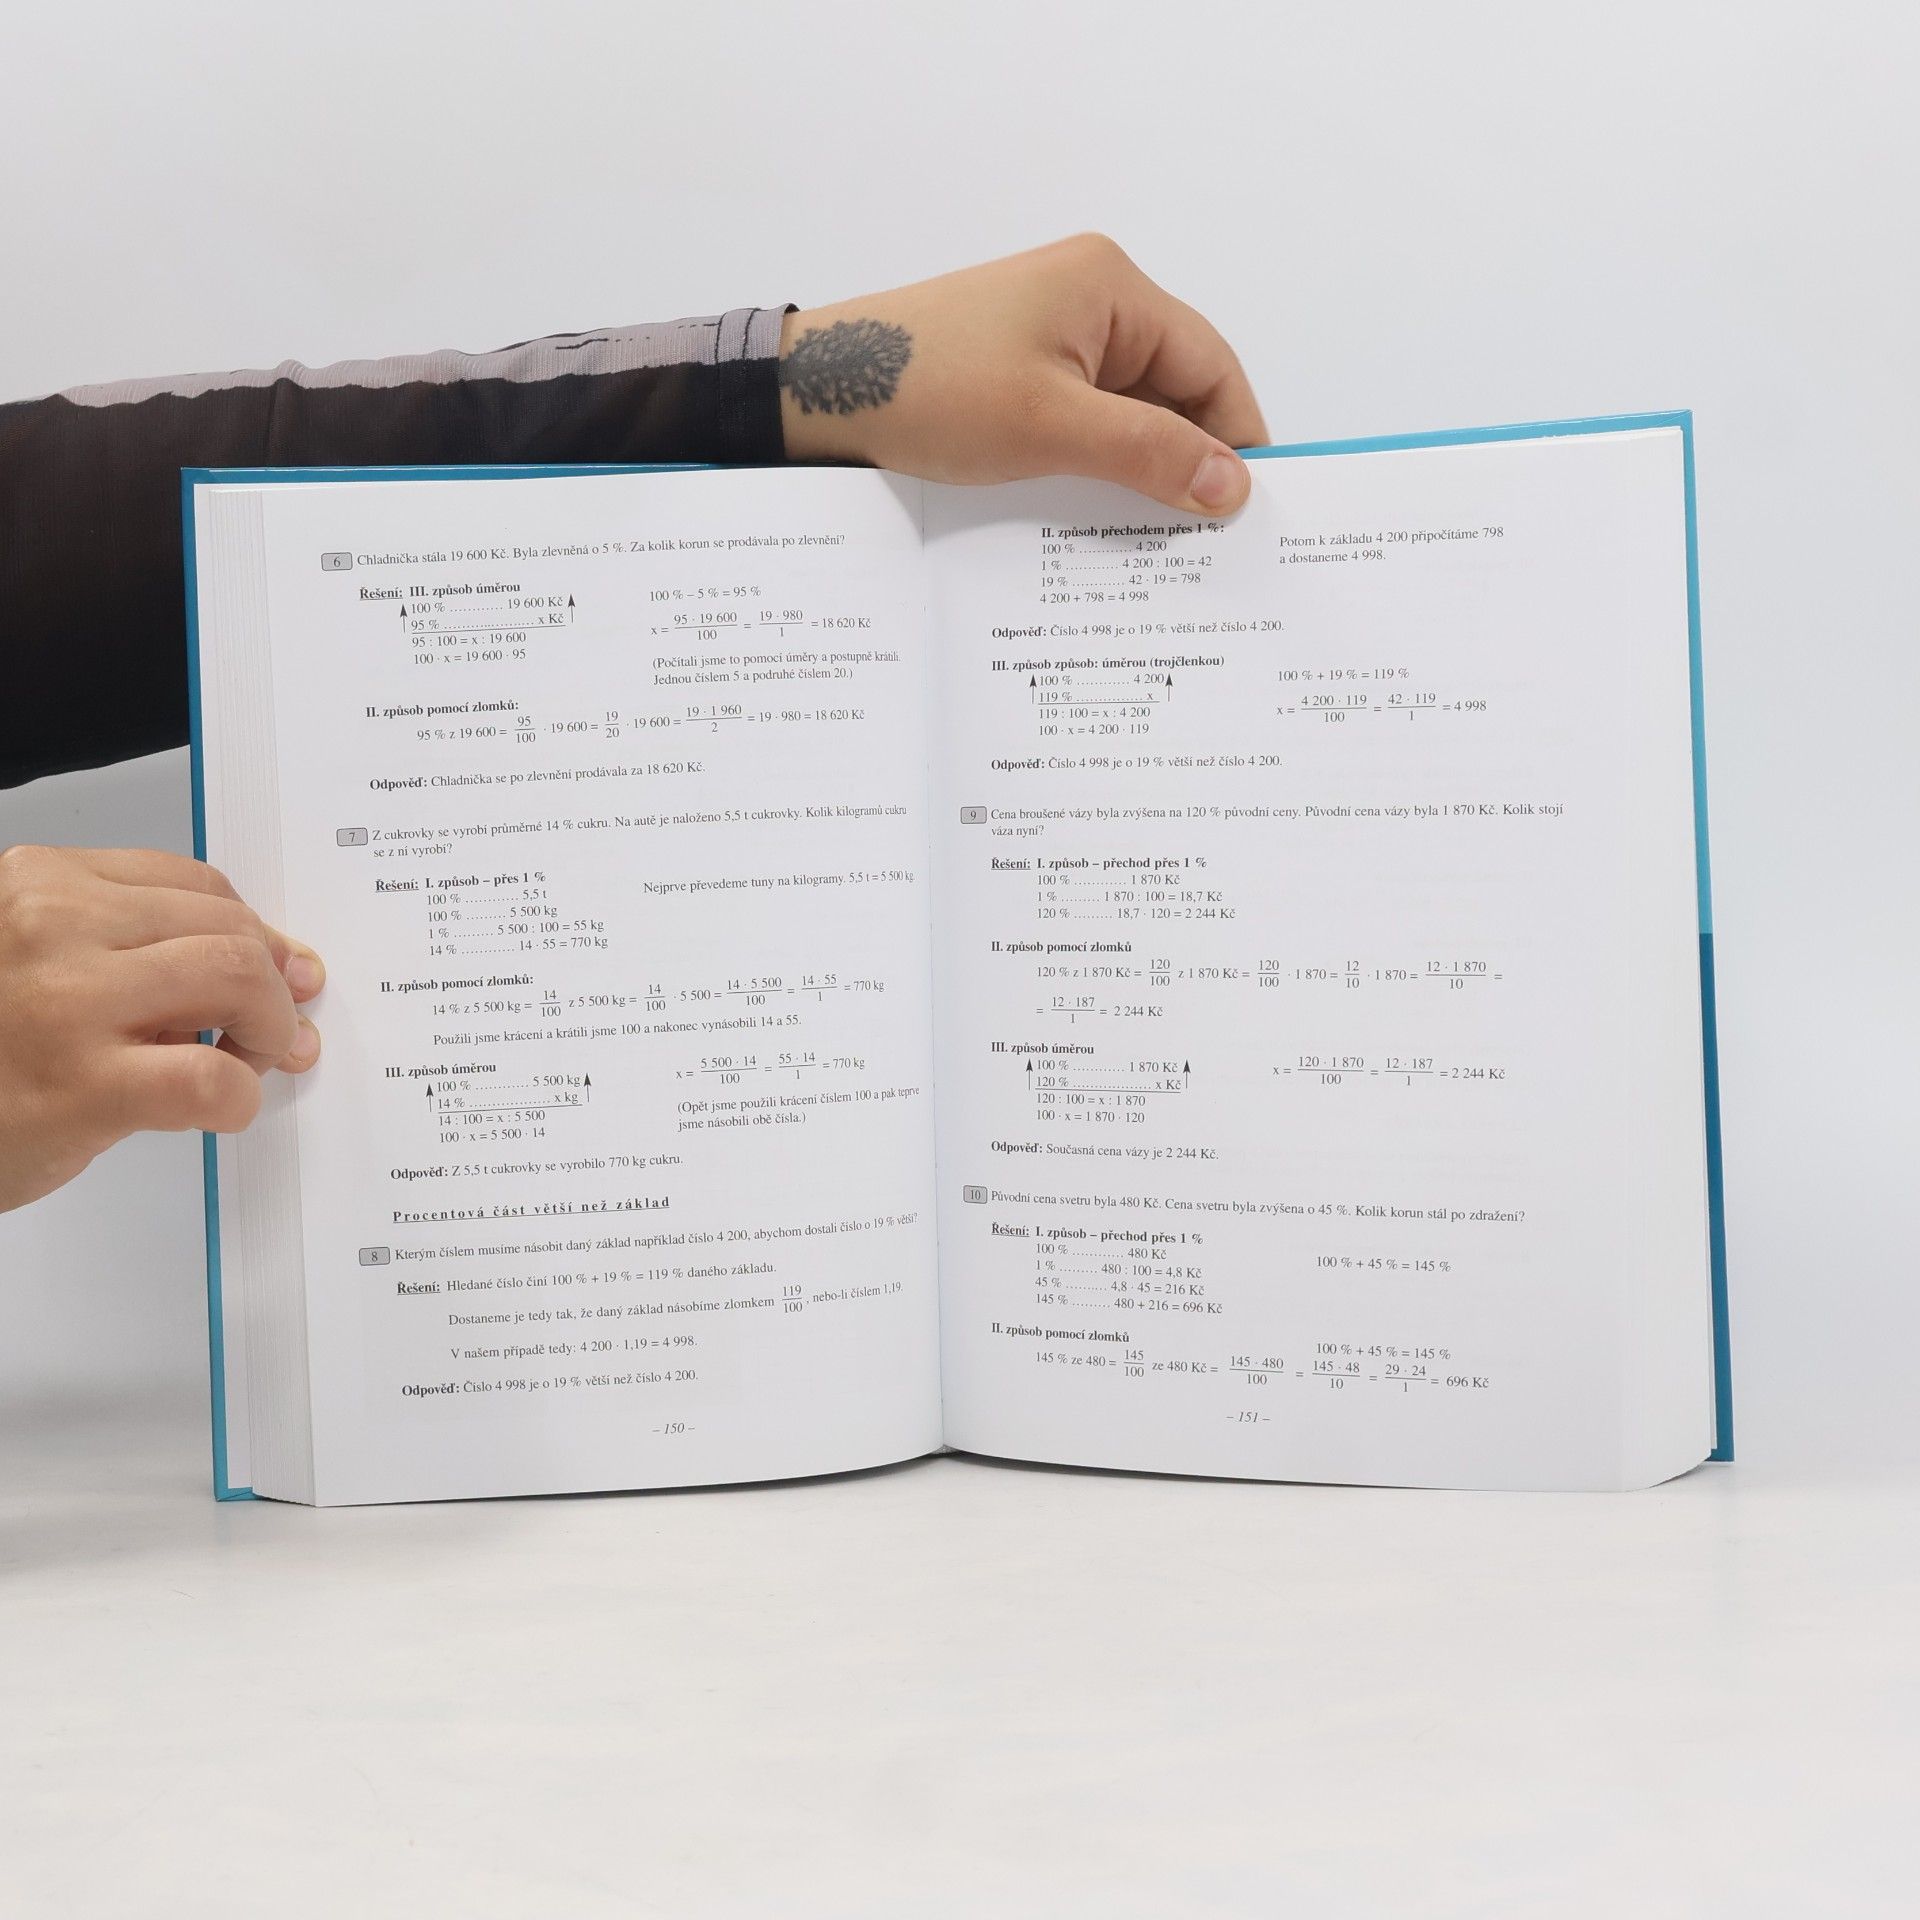 6 Chladnička stála 19 600 Kč. Byla zlevněná o 5 %. Za kolik korun se prodávala po zlevnění?
Řešení: III. způsob úměrou
100 % ............ 19 600 Kč 100 % – 5 % = 95 %
95 % ..................... x Kč
95 : 100 = x : 19 600 x = 95 · 19 600 / 100 = 19 · 980 / 1 = 18 620 Kč
100 · x = 19 600 · 95
(Počítali jsme to pomocí úměry a postupně krátili.
Jednou číslem 5 a podruhé číslem 20.)
II. způsob pomocí zlomků:
95 % z 19 600 = 95/100 · 19 600 = 19/20 · 19 600 = 19 · 1 960 / 2 = 19 · 980 = 18 620 Kč
Odpověď: Chladnička se po zlevnění prodávala za 18 620 Kč.
7 Z cukrovky se vyrobí průměrné 14 % cukru. Na autě je naloženo 5,5 t cukrovky. Kolik kilogramů cukru
se z ní vyrobí?
Řešení: I. způsob – přes 1 %
100 % ............ 5,5 t Nejprve převedeme tuny na kilogramy. 5,5 t = 5 500 kg
100 % ......... 5 500 kg
1 % ......... 5 500 : 100 = 55 kg
14 % ............ 14 · 55 = 770 kg
II. způsob pomocí zlomků:
14 % z 5 500 kg = 14/100 z 5 500 kg = 14/100 · 5 500 = 14 · 5 500 / 100 = 14 · 55 / 1 = 770 kg
Použili jsme krácení a krátili jsme 100 a nakonec vynásobili 14 a 55.
III. způsob úměrou
100 % ............ 5 500 kg x = 5 500 · 14 / 100 = 55 · 14 / 1 = 770 kg
14 % .................. x kg
14 : 100 = x : 5 500 (Opět jsme použili krácení číslem 100 a pak teprve
100 · x = 5 500 · 14 jsme násobili obě čísla.)
Odpověď: Z 5,5 t cukrovky se vyrobilo 770 kg cukru.
Procentová část větší než základ
8 Kterým číslem musíme násobit daný základ například číslo 4 200, abychom dostali číslo o 19 % větší?
Řešení: Hledané číslo činí 100 % + 19 % = 119 % daného základu.
Dostaneme je tedy tak, že daný základ násobíme zlomkem 119/100, nebo-li číslem 1,19.
V našem případě tedy: 4 200 · 1,19 = 4 998.
Odpověď: Číslo 4 998 je o 19 % větší než číslo 4 200.
– 150 –
II. způsob přechodem přes 1 %:
100 % ............ 4 200 Potom k základu 4 200 připočítáme 798
1 % ............ 4 200 : 100 = 42 a dostaneme 4 998.
19 % ............ 42 · 19 = 798
4 200 + 798 = 4 998
Odpověď: Číslo 4 998 je o 19 % větší než číslo 4 200.
III. způsob způsob: úměrou (trojčlenkou)
100 % ............ 4 200 100 % + 19 % = 119 %
119 % ............... x
119 : 100 = x : 4 200 x = 4 200 · 119 / 100 = 42 · 119 / 1 = 4 998
100 · x = 4 200 · 119
Odpověď: Číslo 4 998 je o 19 % větší než číslo 4 200.
9 Cena broušené vázy byla zvýšena na 120 % původní ceny. Původní cena vázy byla 1 870 Kč. Kolik stojí
váza nyní?
Řešení: I. způsob – přechod přes 1 %
100 % ............ 1 870 Kč
1 % ......... 1 870 : 100 = 18,7 Kč
120 % ......... 18,7 · 120 = 2 244 Kč
II. způsob pomocí zlomků
120 % z 1 870 Kč = 120/100 z 1 870 Kč = 120/100 · 1 870 = 12/10 · 1 870 = 12 · 1 870 / 10 =
= 12 · 187 / 1 = 2 244 Kč
III. způsob úměrou
100 % ............ 1 870 Kč x = 120 · 1 870 / 100 = 12 · 187 / 1 = 2 244 Kč
120 % .................. x Kč
120 : 100 = x : 1 870
100 · x = 1 870 · 120
Odpověď: Současná cena vázy je 2 244 Kč.
10 Původní cena svetru byla 480 Kč. Cena svetru byla zvýšena o 45 %. Kolik korun stál po zdražení?
Řešení: I. způsob – přechod přes 1 %
100 % ............ 480 Kč 100 % + 45 % = 145 %
1 % ......... 480 : 100 = 4,8 Kč
45 % ......... 4,8 · 45 = 216 Kč
145 % ......... 480 + 216 = 696 Kč
II. způsob pomocí zlomků
100 % + 45 % = 145 %
145 % ze 480 = 145/100 ze 480 Kč = 145 · 480 / 100 = 145 · 48 / 10 = 29 · 24 / 1 = 696 Kč
– 151 –